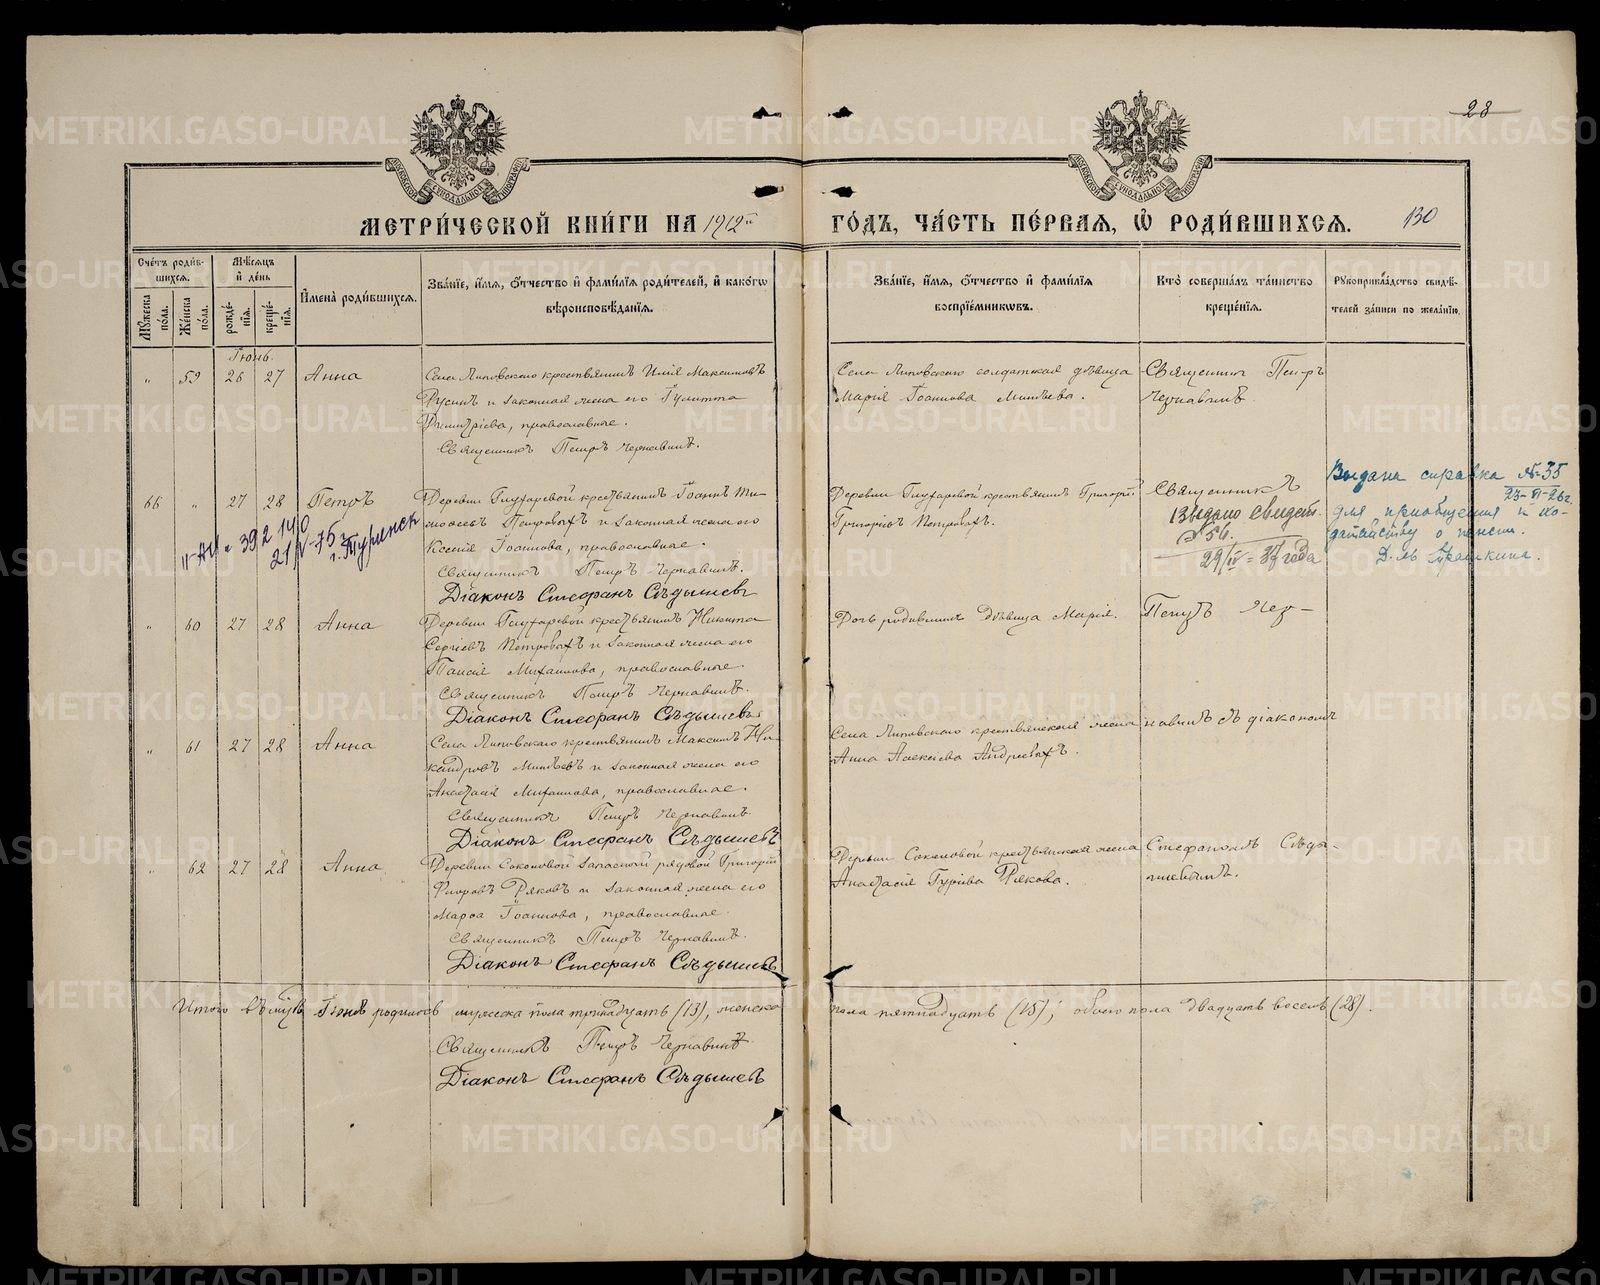 28
МОСКОВСКОЙ СѴНОДАЛЬНОЙ ТИПОГРАФІИ
МОСКОВСКОЙ СѴНОДАЛЬНОЙ ТИПОГРАФІИ
МЕТРИ́ЧЕСКОЙ КНИ́ГИ НА 1912й ГО́ДЪ, ЧА́СТЬ ПЕ́РВАѦ, Ѽ РОДИ́ВШИХСѦ. 130
Сче́тъ роди́в-
шихсѧ.
Мꙋ́жеска по́ла.
Же́нска по́ла.
Мѣ́сѧцъ
и҆ де́нь
рожде́-
нїѧ.
креще́-
нїѧ.
И҆мена̀ роди́вшихсѧ.
Зва́нїе, и҆́мѧ, ѻ҆́тчество и҆ фами́лїѧ роди́телей, и҆ како́гѡ
вѣроисповѣ́данїѧ.
Зва́нїе, и҆́мѧ, ѻ҆́тчество и҆ фами́лїѧ
воспрїе́мникѡвъ.
Кто̀ соверша́лъ та́инство
креще́нїѧ.
Рꙋкоприкла́дство свидѣ́-
телей за́писи по жела́нїю.
Іюнь.
„ 59 26 27 Анна
Села Липовскаго крестьянинъ Илія Максимовъ
Русинъ и законная жена его Іулитта
Димитріева, православные.
Священникъ Петръ Чернавинъ.
Села Липовскаго солдатская дѣвица
Марія Іоаннова Минѣева.
Священникъ Петръ
Чернавинъ.
66 „ 27 28 Петръ
II-АИ № 392140
21/IV-75 г.
г. Туринск
Деревни Глухаревой крестьянинъ Іоаннъ Ти-
моѳеевъ Петровыхъ и законная жена его
Ксенія Іоаннова, православные.
Священникъ Петръ Чернавинъ.
Діаконъ Стефанъ Сѣдышевъ
Деревни Глухаревой крестьянинъ Григорій
Григорьевъ Петровыхъ.
Священникъ
Выдано свидет.
№ 56.
29/IV-37 года
Выдана справка № 35
23-VI-26 г.
для приобщения к хо-
датайству о пенсии.
„ 60 27 28 Анна
Деревни Глухаревой крестьянинъ Никита
Сергіевъ Петровыхъ и законная жена его
Таисія Михаилова, православные.
Священникъ Петръ Чернавинъ.
Діаконъ Стефанъ Сѣдышевъ
Дочь родившихъ дѣвица Марія.
Петръ Чер-
„ 61 27 28 Анна
Села Липовскаго крестьянинъ Максимъ Ни-
кандровъ Минѣевъ и законная жена его
Анастасія Михаилова, православные.
Священникъ Петръ Чернавинъ
Діаконъ Стефанъ Сѣдышевъ
Села Липовскаго крестьянская жена
Анна Алексіева Андреевыхъ.
навинъ съ діакономъ
„ 62 27 28 Анна
Деревни Соколовой запасной рядовой Григорій
Флоровъ Ряковъ и законная жена его
Марѳа Іоаннова, православные.
Священникъ Петръ Чернавинъ.
Діаконъ Стефанъ Сѣдышевъ
Деревни Соколовой крестьянская жена
Анастасія Гуріева Рякова.
Стефаномъ Сѣды-
шевымъ.
Итого въ мѣс. Іюнѣ родилось мужеска пола тринадцать (13), женска пола пятнадцать (15); обоего пола двадцать восемь (28).
Священникъ Петръ Чернавинъ
Діаконъ Стефанъ Сѣдышевъ
METRIKI.GASO-URAL.RU